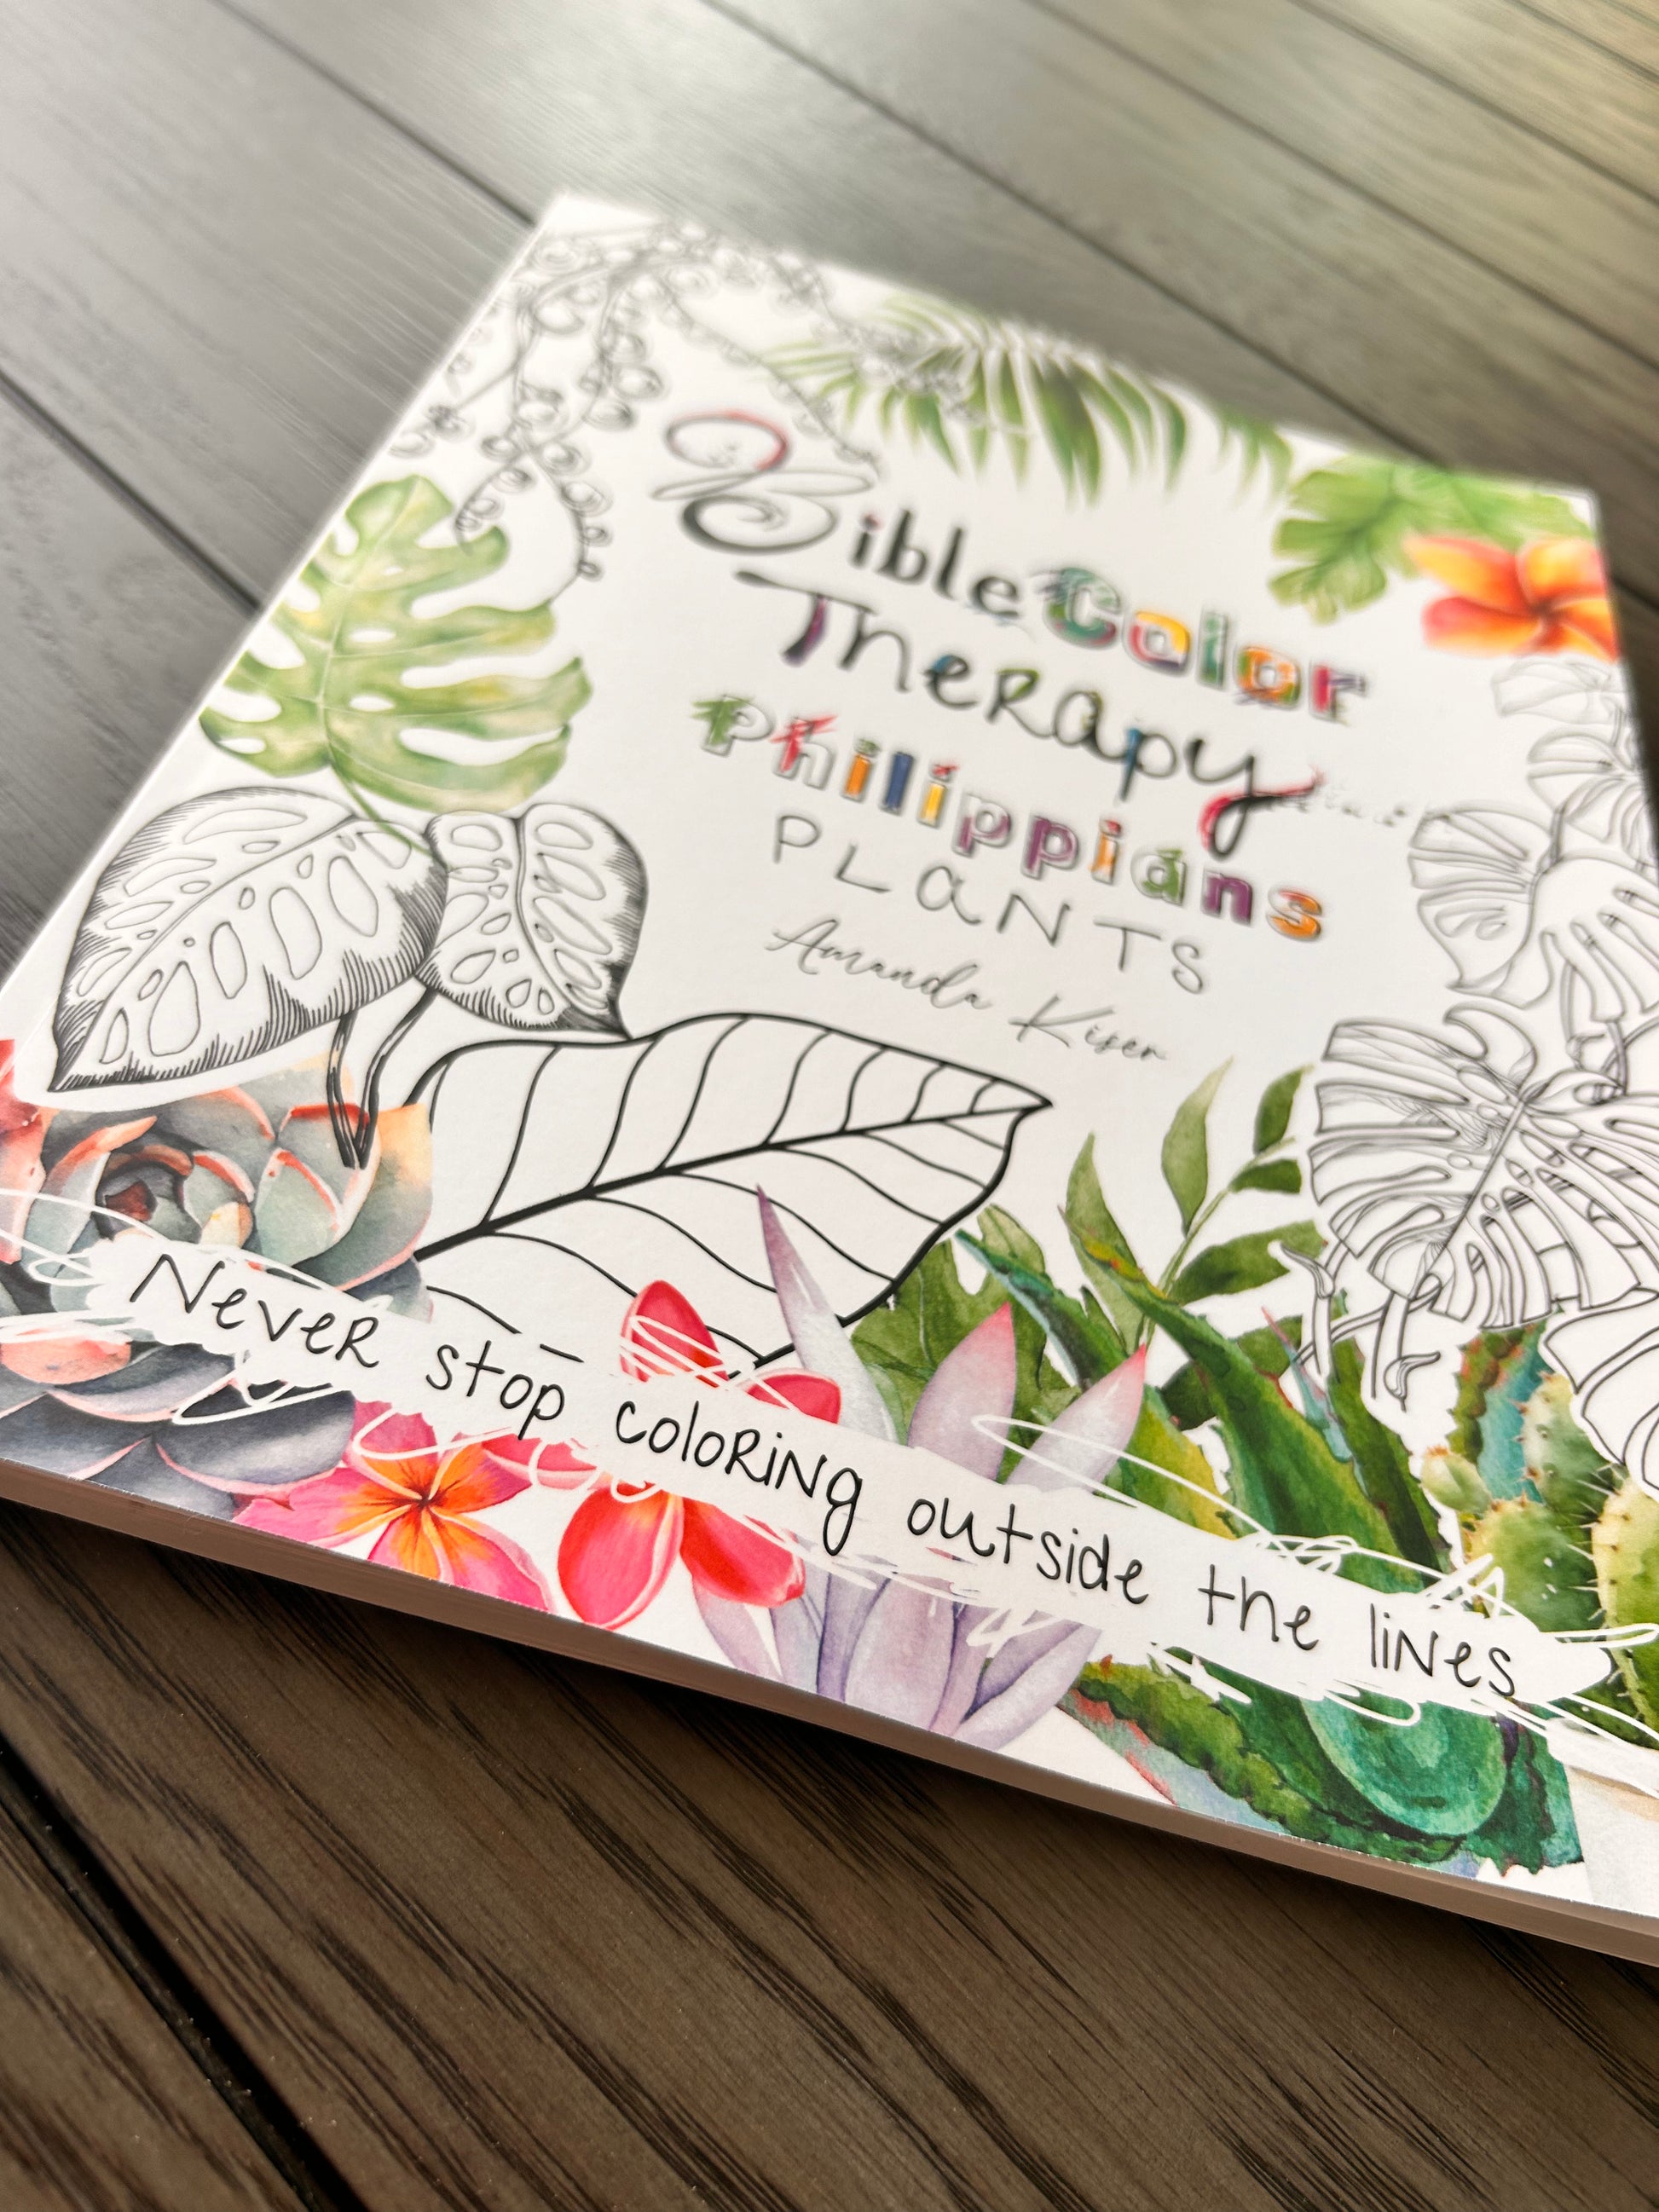 Bible Color
Therapy
Philippians
PLANTS
Amanda Kiser
Never stop coloring outside the lines